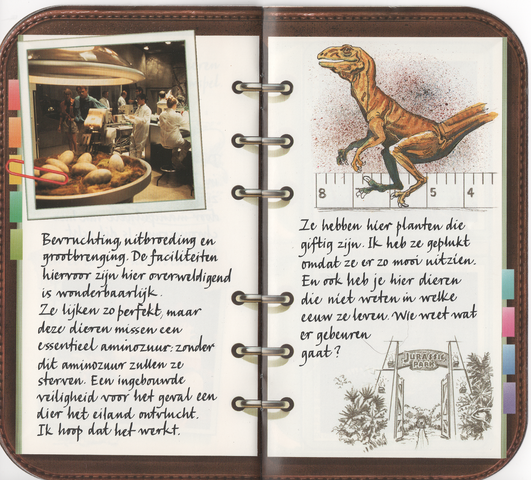 Bevruchting, uitbroeding en
grootbrenging. De faciliteiten
hiervoor zijn hier overweldigend
is wonderbaarlijk.
Ze lijken zo perfekt, maar
deze dieren missen een
essentieel aminozuur: zonder
dit aminozuur zullen ze
sterven. Een ingebouwde
veiligheid voor het geval een
dier het eiland ontvlucht.
Ik hoop dat het werkt.
8 5 4
Ze hebben hier planten die
giftig zijn. Ik heb ze geplukt
omdat ze er zo mooi uitzien.
En ook heb je hier dieren
die niet weten in welke
eeuw ze leven. Wie weet wat
er gebeuren
gaat?
JURASSIC
PARK